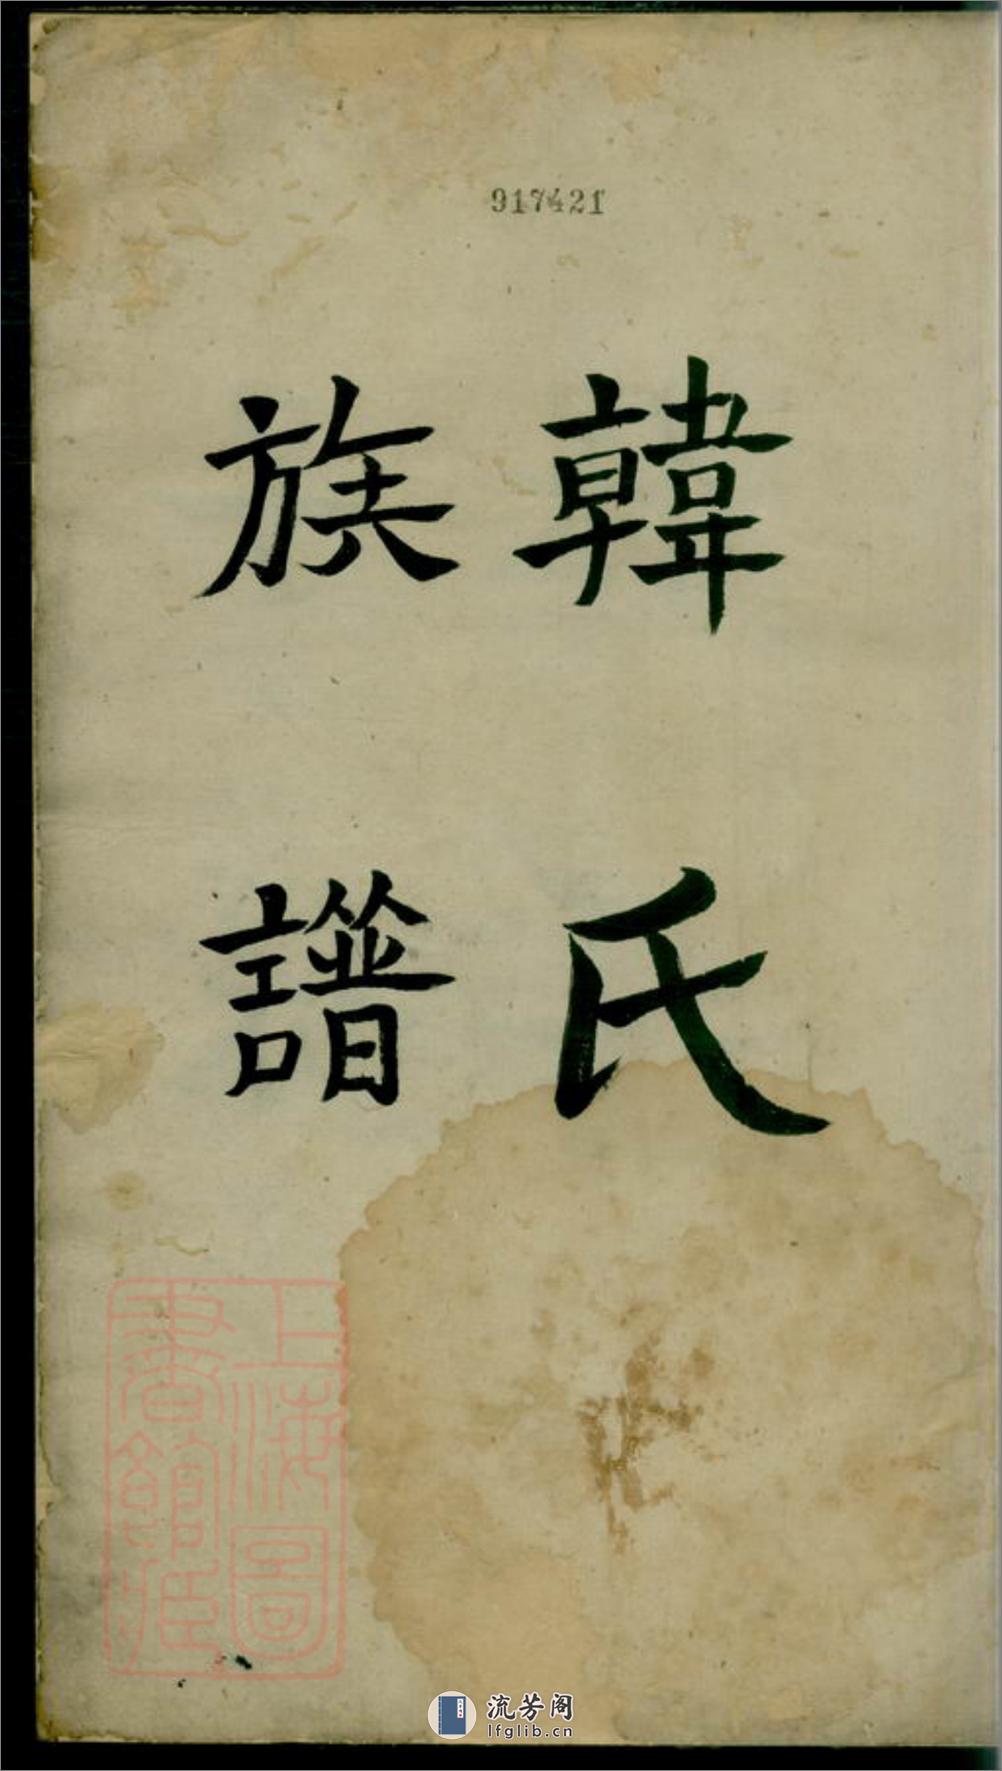 917421
韓氏
族譜
上海圖
書館藏
流芳阁
lfglib.cn